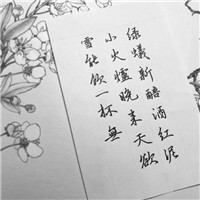 綠蟻新醅酒紅泥
小火爐晚来天欲
雪能飲一杯無